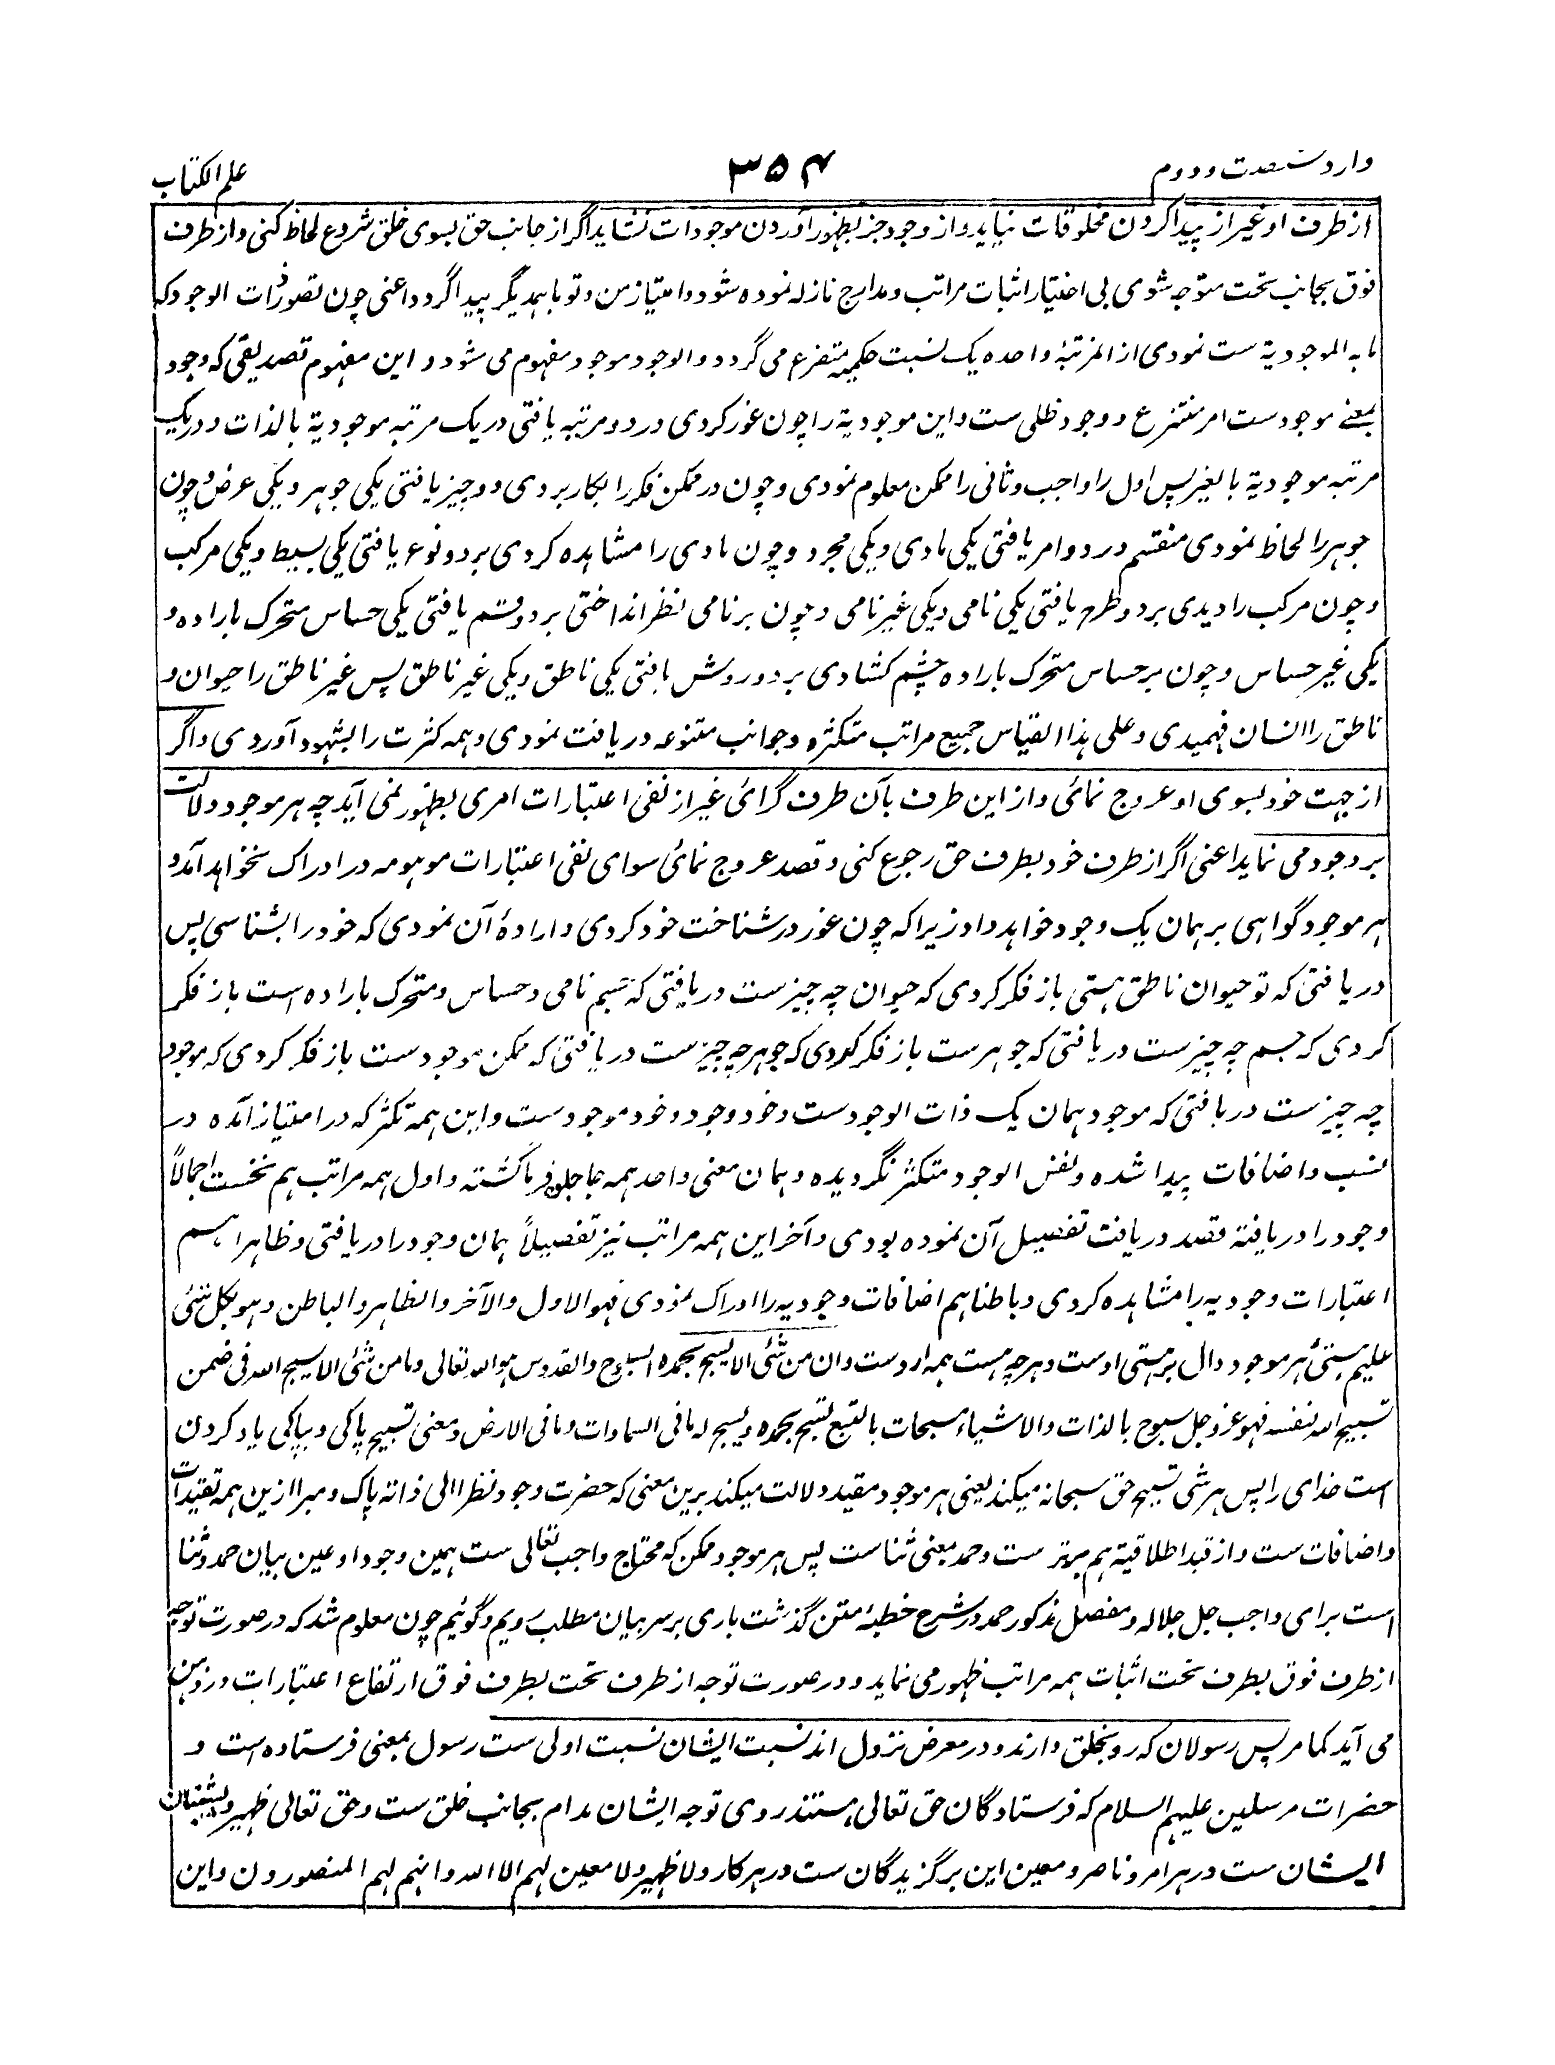 وارد شصت و دوم
۳۵۴
علم الکتاب
از طرف او غیر از پیدا کردن مخلوقات نیاید و از وجود جز بظهور آوردن موجودات نشاید اگر از جانب حق بسوی خلق شروع لحاظ کنی و از طرف
فوق بجانب تحت متوجه شوی بی اختیار اثبات مراتب و مدارج نازله نموده شود و امتیاز من و تو باهمدیگر پیدا گردد اعنی چون تصور ذات الوجود که
ما به الموجودیة ست نمودی از المرتبۀ واحده یک نسبت حکمیه متفرع می گردد و الوجود موجود مفهوم می شود و این مفهوم تصدیقی که وجود
بمعنے موجود ست امر منتزع و وجود ظلی ست و این موجودیة را چون غور کردی در دو مرتبه یافتی در یک مرتبه موجودیة بالذات و در یک
مرتبه موجودیة بالغیر پس اول را واجب و ثانی را ممکن معلوم نمودی و چون در ممکن فکر را بکار بردی دو چیز یافتی یکی جوهر و یکی عرض و چون
جوهر را لحاظ نمودی منقسم در دو امر یافتی یکی مادی و یکی مجرد و چون مادی را مشاهده کردی بر دو نوع یافتی یکی بسیط و یکی مرکب
و چون مرکب را دیدی بر دو طرح یافتی یکی نامی و یکی غیر نامی و چون بر نامی نظر انداختی بر دو قسم یافتی یکی حساس متحرک باراده و
یکی غیر حساس و چون بر حساس متحرک باراده چشم کشادی بر دو روش یافتی یکی ناطق و یکی غیر ناطق پس غیر ناطق را حیوان و
ناطق را انسان فهمیدی و علی هذا القیاس جمیع مراتب متکثره و جوانب متنوعه دریافت نمودی و همه کثرت را بشهود آوردی و اگر
از جهت خود بسوی او عروج نمائی و از این طرف بآن طرف گرائی غیر از نفی اعتبارات امری بظهور نمی آید چه هر موجود دلالت
بر وجود می نماید اعنی اگر از طرف خود بطرف حق رجوع کنی و قصد عروج نمائی سوای نفی اعتبارات موهومه در ادراک نخواهد آمد و
هر موجود گواهی بر همان یک وجود خواهد داد زیرا که چون غور در شناخت خود کردی و ارادۀ آن نمودی که خود را بشناسی پس
دریافتی که تو حیوان ناطق هستی باز فکر کردی که حیوان چه چیز ست دریافتی که جسم نامی و حساس و متحرک باراده است باز فکر
کردی که جسم چه چیز ست دریافتی که جوهر ست باز فکر کردی که جوهر چه چیز ست دریافتی که ممکن موجود ست باز فکر کردی که موجود
چه چیز ست دریافتی که موجود همان یک ذات الوجود ست و خود وجود و خود موجود ست و این همه تکثر که در امتیاز آمده در
نسب و اضافات پیدا شده و نفس الوجود متکثر نگردیده و همان معنی واحد همه جا جلوه فرما گشته و اول همه مراتب هم نخست اجمالاً
وجود را دریافتة قصد دریافت تفصیل آن نموده بودی و آخر این همه مراتب نیز تفصیلاً همان وجود را دریافتی و ظاهرا هم
اعتبارات وجودیه را مشاهده کردی و باطنا هم اضافات وجودیه را ادراک نمودی فهو الاول والآخر والظاهر والباطن وهو بکل شئ
علیم هستیٔ هر موجود دال بر هستی اوست و هر چه هست همه از وست وان من شئ الا یسبح بحمده السبوح والقدوس هو الله تعالی وما من شئ الا یسبح الله فی ضمن
تسبیح الله نفسه فهو عز وجل سبوح بالذات والاشیاء مسبحات بالتبع تسبح بحمده ویسبح له ما فی السماوات وما فی الارض و معنی تسبیح پاکی و بپاکی یاد کردن
است خدای را پس هر شی تسبیح حق سبحانه میکند یعنی هر موجود مقید دلالت میکند برین معنی که حضرت وجود نظرا الی ذاته پاک و مبرا ازین همه تقیدات
و اضافات ست و از قید اطلاقیة هم برتر ست و حمد معنی ثناست پس هر موجود ممکن که محتاج واجب تعالی ست همین وجود او عین بیان حمد و ثنا
است برای واجب جل جلاله و مفصل مذکور حمد در شرح خطبۀ متن گذشت باری بر سر بیان مطلب رویم و گوئیم چون معلوم شد که در صورت توجه
از طرف فوق بطرف تحت اثبات همه مراتب ظهور می نماید و در صورت توجه از طرف تحت بطرف فوق ارتفاع اعتبارات در ذهن
می آید کما مر پس رسولان که رو بخلق دارند و در معرض نزول اند نسبت ایشان نسبت اولی ست رسول بمعنی فرستاده است و
حضرات مرسلین علیهم السلام که فرستادگان حق تعالی هستند روی توجه ایشان مدام بجانب خلق ست و حق تعالی ظهیر و پشتیبان
ایشان ست در هر امر و ناصر و معین این برگزیدگان ست در هر کار ولا ظهیر ولا معین لهم الا الله وانهم لهم المنصورون و این